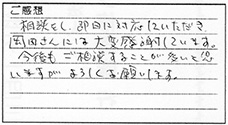 ご感想
相談をし、即日に対応していただき、
岡田さんには大変感謝しています。
今後もご相談することが多いと思
いますがよろしくお願いします。